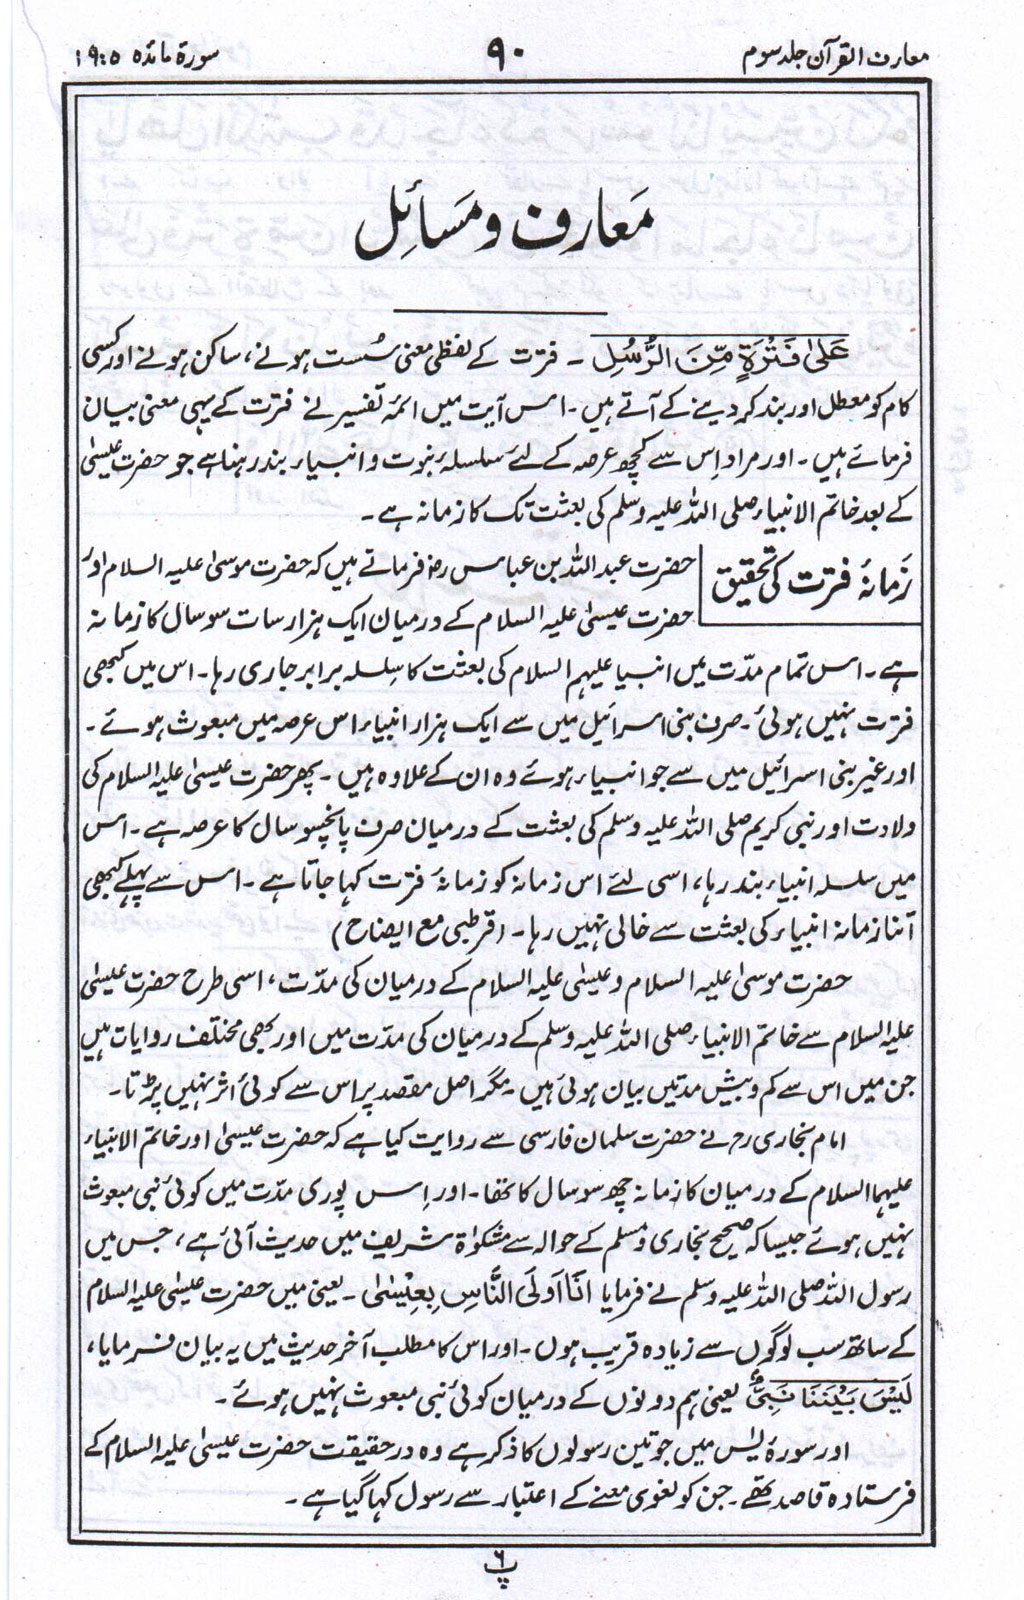 معارف القرآن جلد سوم
۹۰
سورۃ مائدہ ۵:۱۹
معارف و مسائل
عَلٰی فَتْرَۃٍ مِّنَ الرُّسُلِ ۔ فترت کے لفظی معنی سُست ہونے، ساکن ہونے اور کسی
کام کو معطل اور بند کر دینے کے آتے ہیں۔ اس آیت میں ائمۂ تفسیر نے فترت کے یہی معنی بیان
فرمائے ہیں۔ اور مراد اِس سے کچھ عرصہ کے لئے سلسلۂ نبوت و انبیاء بند رہنا ہے جو حضرت عیسٰیؑ
کے بعد خاتم الانبیاء صلی اللہ علیہ وسلم کی بعثت تک کا زمانہ ہے۔
زمانۂ فترت کی تحقیق
حضرت عبد اللہ بن عباس رضؓ فرماتے ہیں کہ حضرت موسیٰ علیہ السلام اور
حضرت عیسیٰ علیہ السلام کے درمیان ایک ہزار سات سو سال کا زمانہ
ہے۔ اس تمام مدّت میں انبیا علیہم السلام کی بعثت کا سِلسلہ برابر جاری رہا۔ اس میں کبھی
فترت نہیں ہوئی۔ صرف بنی اسرائیل میں سے ایک ہزار انبیاء اس عرصہ میں مبعوث ہوئے۔
اور غیر بنی اسرائیل میں سے جو انبیاء ہوئے وہ ان کے علاوہ ہیں۔ پھر حضرت عیسیٰ علیہ السلام کی
ولادت اور نبی کریم صلی اللہ علیہ وسلم کی بعثت کے درمیان صرف پانچسو سال کا عرصہ ہے۔ اس
میں سلسلہ انبیاء بند رہا، اسی لئے اس زمانہ کو زمانۂ فترت کہا جاتا ہے۔ اس سے پہلے کبھی
اتنا زمانہ انبیاء کی بعثت سے خالی نہیں رہا۔ (قرطبی مع ایضاح)
حضرت موسیٰ علیہ السلام و عیسیٰ علیہ السلام کے درمیان کی مدّت، اسی طرح حضرت عیسیٰ
علیہ السلام سے خاتم الانبیاء صلی اللہ علیہ وسلم کے درمیان کی مدّت میں اور بھی مختلف روایات ہیں
جن میں اس سے کم و بیش مدتیں بیان ہوئی ہیں۔ مگر اصل مقصد پر اس سے کوئی اثر نہیں پڑتا۔
امام بخاری رحؒ نے حضرت سلمان فارسی سے روایت کیا ہے کہ حضرت عیسیٰ اور خاتم الانبیاء
علیہما السلام کے درمیان کا زمانہ چھ سو سال کا تھا۔ اور اِس پوری مدّت میں کوئی نبی مبعوث
نہیں ہوئے جیسا کہ صحیح بخاری و مسلم کے حوالہ سے مشکوٰۃ شریف میں حدیث آئی ہے، جس میں
رسول اللہ صلی اللہ علیہ وسلم نے فرمایا اَنَا اَوْلَی النَّاسِ بِعِیْسٰی۔ یعنی میں حضرت عیسیٰ علیہ السلام
کے ساتھ سب لوگوں سے زیادہ قریب ہوں۔ اور اس کا مطلب آخر حدیث میں یہ بیان فرمایا،
لَیْسَ بَیْنَنَا نَبِیٌّ یعنی ہم دونوں کے درمیان کوئی نبی مبعوث نہیں ہوئے۔
اور سورۂ یٰس میں جو تین رسولوں کا ذکر ہے وہ درحقیقت حضرت عیسیٰ علیہ السلام کے
فرستادہ قاصد تھے۔ جن کو لغوی معنے کے اعتبار سے رسول کہا گیا ہے۔
پ ۶